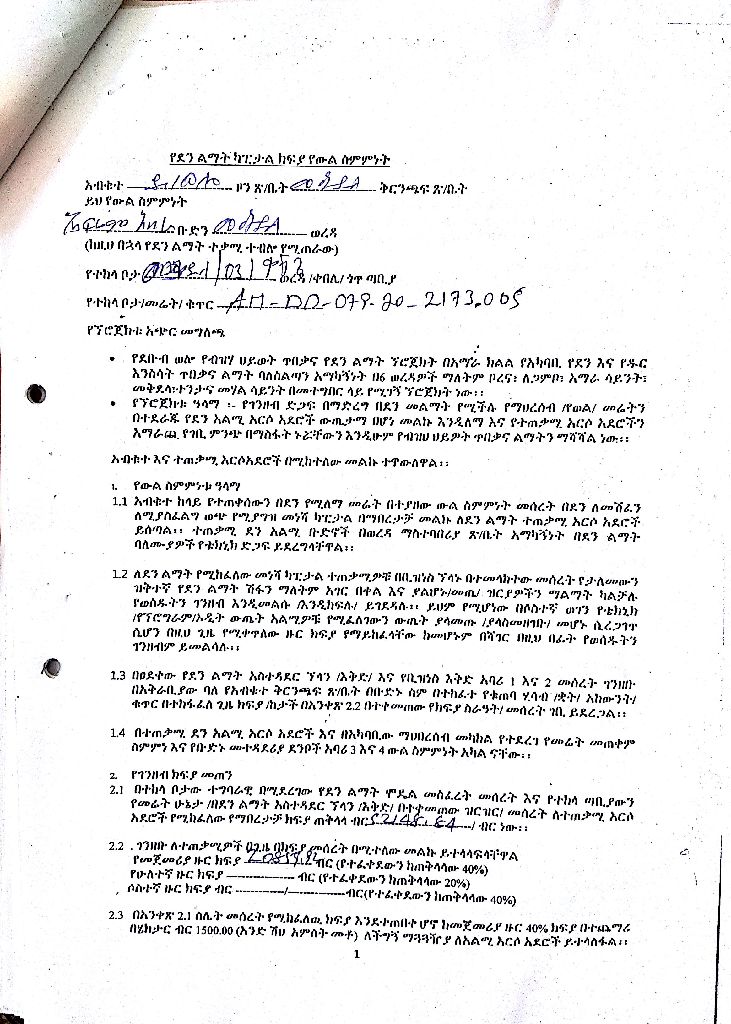 የደን ልማት ካፒታል ክፍያ የውል ስምምነት
አብቁተ ዞን ጽ/ቤት ቅርንጫፍ ጽ/ቤት
ይህ የውል ስምምነት
ቡድን ወረዳ
(ከዚህ በኋላ የደን ልማት ተቃሚ ተብሎ የሚጠራው)
የተከላ ቦታ ወረዳ /ቀበሌ/ ጎጥ ጣቢያ
የተከላ ቦታ/መሬት/ ቁጥር AM-DD-079-20-2173.005
የፕሮጀክቱ አጭር መግለጫ
• የደቡብ ወሎ የብዝሃ ሀይወት ጥበቃና የደን ልማት ፕሮጀክት በአማራ ክልል የአካባቢ የደን እና የዱር
እንስሳት ጥበቃና ልማት ባለስልጣን አማካኝነት በ6 ወረዳዎች ማለትም ቦረና፣ ለጋምቦ፣ አማራ ሳይንት፣
መቅደላ፣ተንታና መሃል ሳይንት በመተግበር ላይ የሚገኝ ፕሮጀክት ነው፡፡
• የፕሮጀክቱ ዓላማ ፡- የገንዘብ ድጋፍ በማድረግ በደን መልማት የሚችሉ የማህረሰብ /የወል/ መሬትን
በተደራጁ የደን አልሚ አርሶ አደሮች ውጤታማ በሆነ መልኩ እንዲለማ እና የተጠቃሚ አርሶ አደሮችን
አማራጪ የገቢ ምንጭ በማስፋት ኑሯቸውን እንዲሁም የብዝሀ ህይዎት ጥበቃና ልማትን ማሻሻል ነው፡፡
አብቁተ እና ተጠቃሚ አርሶአደሮች በሚከተለው መልኩ ተዋውለዋል፡፡
1. የውል ስምምነቱ ዓላማ
1.1 አብቁተ ከላይ የተጠቀሰውን በደን የሚለማ መሬት በተያዘው ውል ስምምነት መሰረት በደን ለመሸፈን
ለሚያስፈልግ ወጭ የሚያግዝ መነሻ ካፒታል በማበረታቻ መልኩ ለደን ልማት ተጠቃሚ አርሶ አደሮች
ይሰጣል፡፡ ተጠቃሚ ደን አልሚ ቡድኖች በወረዳ ማስተባበሪያ ጽ/ቤት አማካኝነት በደን ልማት
ባለሙያዎች የቴክኒክ ድጋፍ ይደረግላቸዋል፡፡
1.2 ለደን ልማት የሚከፈለው መነሻ ካፒታል ተጠቃሚዎቹ በቢዝነስ ፕላኑ በተመላከተው መሰረት የታለመውን
ዝቅተኛ የደን ልማት ሽፋን ማለትም አገር በቀል እና ያልሆኑ/መጤ/ ዝርያዎችን ማልማት ካልቻሉ
የወሰዱትን ገንዘብ እንዲመልሱ /እንዲከፍሉ/ ይገደዳሉ፡፡ ይህም የሚሆነው በሶስተኛ ወገን የቴክኒክ
/የፕሮግራም/ኦዲት ውጤት አልሚዎቹ የሚፈለገውን ውጤት ያላመጡ /ያላስመዘገቡ/ መሆኑ ሲረጋገጥ
ሲሆን በዚህ ጊዜ የሚቀጥለው ዙር ክፍያ የማይከፈላቸው ከመሆኑም በሻገር በዚህ በፊት የወሰዱትን
ገንዘብም ይመልሳሉ፡፡
1.3 በፀደቀው የደን ልማት አስተዳደር ፕላን /እቅድ/ እና የቢዝነስ እቅድ አባሪ 1 እና 2 መሰረት ገንዘቡ
በአቅራቢያው ባለ የአብቁተ ቅርንጫፍ ጽ/ቤት በቡድኑ ስም በተከፈተ የቁጠባ ሂሳብ /ቋት/ አካውንት/
ቁጥር በተከፋፈለ ጊዜ ክፍያ /ከታች በአንቀጽ 2.2 በተቀመጠው የክፍያ ስራዓት/ መሰረት ገቢ ይደረጋል፡፡
1.4 በተጠቃሚ ደን አልሚ አርሶ አደሮች እና በአካባቢው ማህበረሰብ መካከል የተደረገ የመሬት መጠቀም
ስምምነ እና የቡድኑ መተዳደሪያ ደንቦች አባሪ 3 እና 4 ውል ስምምነት አካል ናቸው፡፡
2. የገንዘብ ክፍያ መጠን
2.1 በተከላ ቦታው ተግባራዊ በሚደረገው የደን ልማት ሞዴል መስፈረት መሰረት እና የተከላ ጣቢያውን
የመሬት ሁኔታ /በደን ልማት አስተዳደር ፕላን /እቅድ/ በተቀመጠው ዝርዝር/ መሰረት ለተጠቃሚ አርሶ
አደሮች የሚከፈለው የማበረታቻ ክፍያ ጠቅላላ ብር 52148.54 / ብር ነው፡፡
2.2 ገንዘቡ ለተጠቃሚዎች በጊዜ በክፍያ መሰረት በሚተለው መልኩ ይተላለፍላቸዋል
የመጀመሪያ ዙር ክፍያ ብር (የተፈቀደውን ከጠቅላላው 40%)
የሁለተኛ ዙር ክፍያ ---------------- ብር (የተፈቀደውን ከጠቅላላው 20%)
ሶስተኛ ዙር ክፍያ ብር ------------/--------------ብር(የተፈቀደውን ከጠቅላላው 40%)
2.3 በአንቀጽ 2.1 ስሌት መሰረት የሚከፈለዉ ክፍያ እንደተጠበቀ ሆኖ ከመጀመሪያ ዙር 40% ክፍያ በተጨማሪ
በሄክታር ብር 1500.00 (አንድ ሽህ አምስት መቶ) ለችግኝ ማጓጓዣያ ለአልሚ አርሶ አደሮች ይተላለፋል፡፡
1